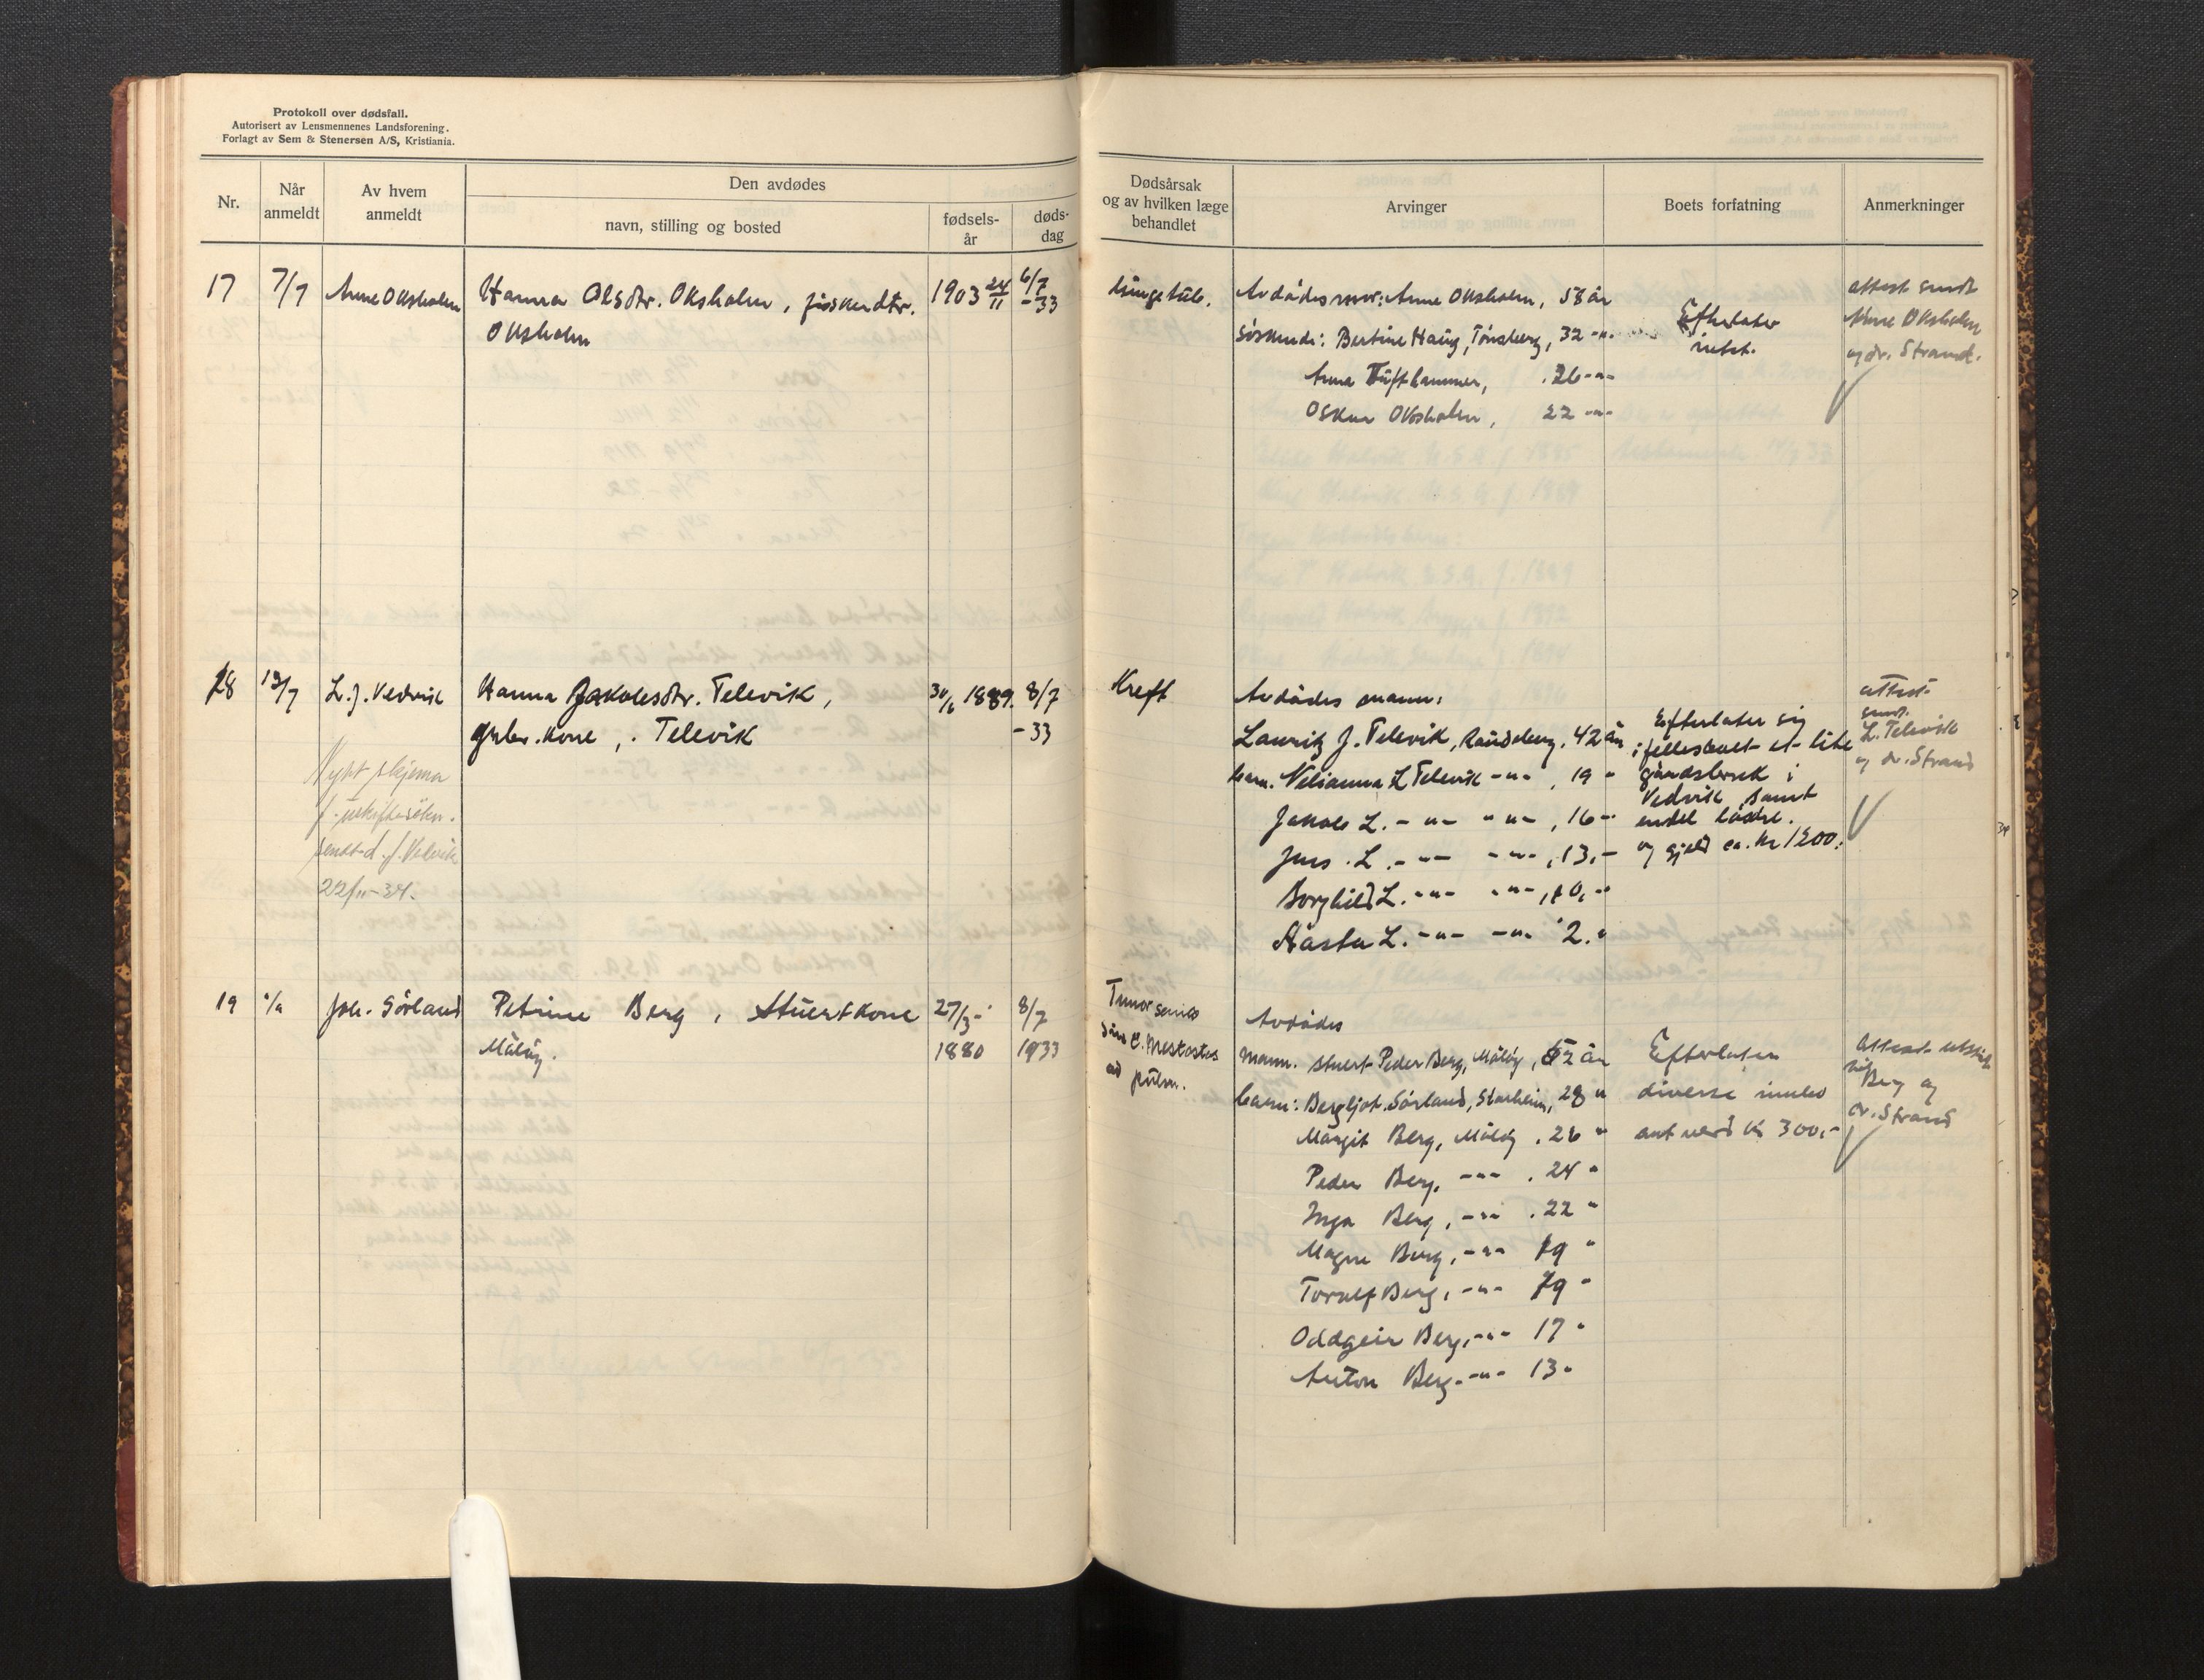 Protokoll over dødsfall.
Autorisert av Lensmennenes Landsforening.
Forlagt av Sem & Stenersen A/S, Kristiania.
Nr.
Når anmeldt
Av hvem anmeldt
Den avdødes
navn, stilling og bosted
fødsels-år
døds-dag
Dødsårsak og av hvilken læge behandlet
Arvinger
Boets forfatning
Anmerkninger
17 7/7 Anne Oksholm Hanna Olsdtr. Oksholm, fiskerdtr. 1903 24/11 6/7 -33
Oksholm
Lungetub.
Avdødes mor: Anne Oksholm, 58 år
Søskende: Bertine Haug, Tønsberg, 32 -"-
Anna Tufthammer, 26 -"-
Oskar Oksholm, 22 -"-
Efterlater
intet.
attest sendt
Anne Oksholm
og dr. Strand.
18 12/7 L. J. Vedvik Hanna Jakobsdtr. Televik, 30/6 1889. 8/7
gbr. kone, Televik -33
Nytt skjema
f. uskiftesøkn.
sendt d. f. Vedvik
22/11-34.
Kreft
Avdødes mann:
Lauritz J. Televik, Raudeberg. 42 år
barn. Nelianna L Televik -"- , 19 "
Jakob L. -"- -"- , 16 -"
Jens L. -"- -"- , 13, -
Borghild L. -"- -"- , 10, -"
Aasta L. -"- -"- 2. "
Efterlater sig
i fellesboet et lite
gårdsbruk i
Vedvik samt
endel løsøre.
og gjeld ca. kr 1200.
attest
sendt
L. Televik
og dr. Strand
19 Joh. Sørland Petrine Berg, Stuertkone 27/3- 8/7
Måløy. 1880 1933
Tumor
ad pulm.
Avdødes
mann. stuert Peder Berg, Måløy, 52 år
barn: Bergljot Sørland, Starheim, 28 "
Margit Berg, Måløy . 26 "
Peder Berg, -"- . 24 "
Inga Berg, -"- . 22 "
Magne Berg, -"- 19 "
Toralf Berg, -"- 19 "
Oddgeir Berg, -"- 17 "
Anton Berg. -"- 13 "
Efterlater
diverse innbo
ant verd kr 300,-
Attest
Berg og
dr. Strand